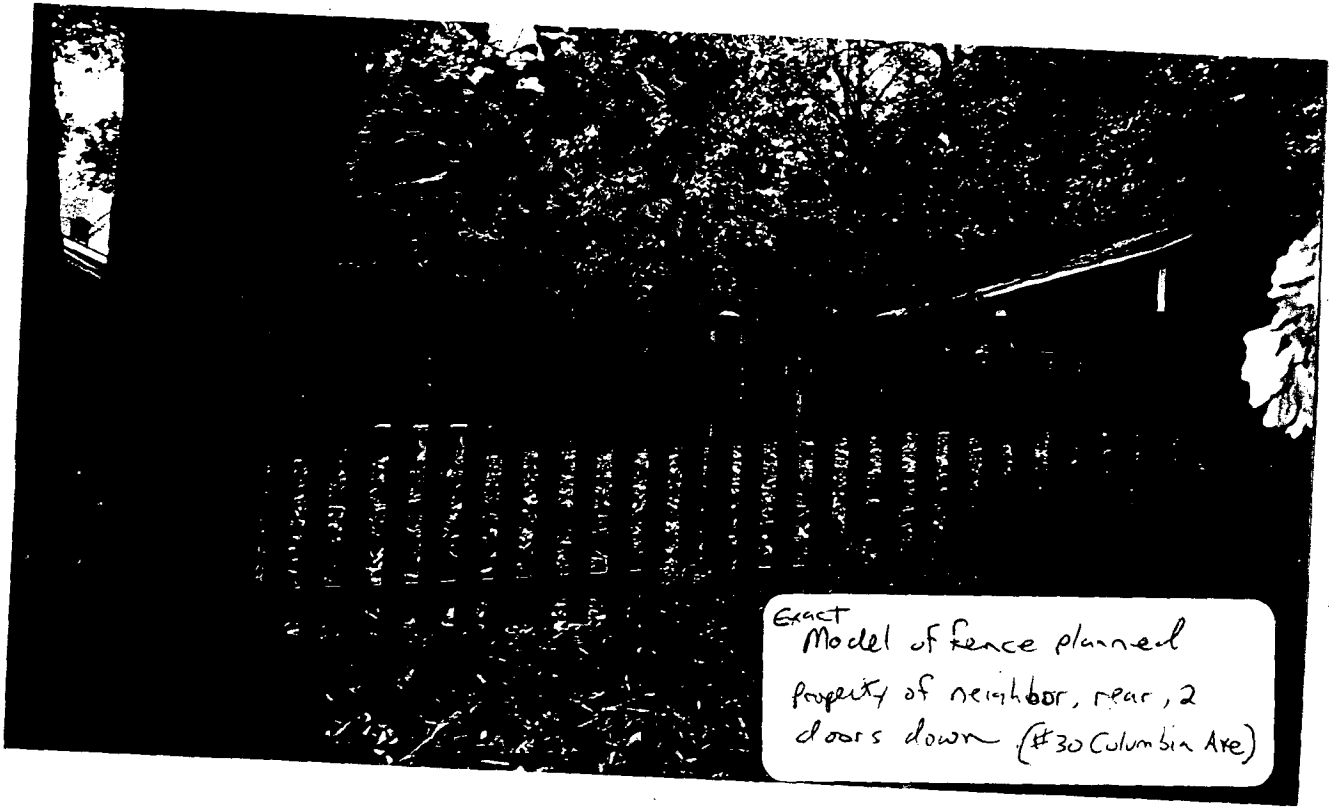 Exact
Model of fence planned
property of neighbor, rear, 2
doors down (#30 Columbia Ave)